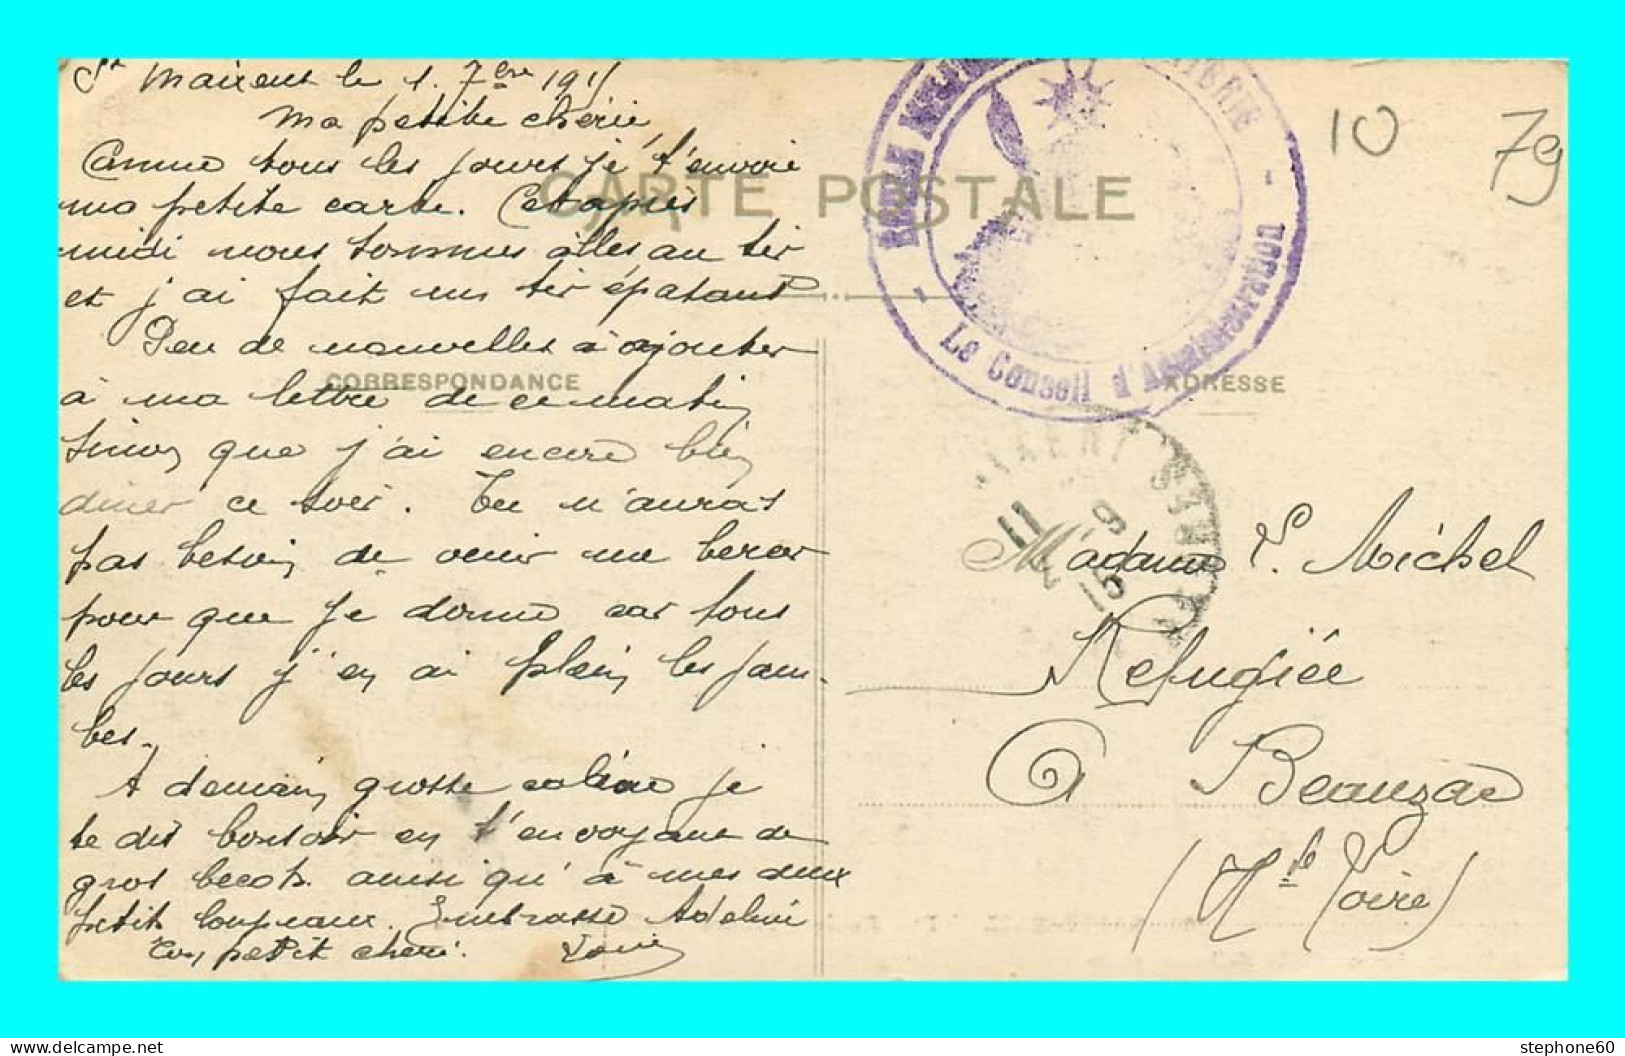 St Maixent le 1. 7bre 1915
Ma petite chérie,
Comme tous les jours je t'envoie
ma petite carte. Cet après
midi nous sommes allés au tir
et j'ai fait un tir épatant
Peu de nouvelles à ajouter
à ma lettre de ce matin
sinon que j'ai encore bien
diner ce soir. Tu n'auras
pas besoin de venir me bercer
pour que je dorme car tous
les jours j'en ai plein les jam-
bes.
A demain grosse caline je
te dis bonsoir en t'envoyant de
gros becots ainsi qu'à mes deux
petits loupiaux. Embrasse Adeline
Ton petit chéri. Louis
CARTE POSTALE
CORRESPONDANCE
ADRESSE
Le Conseil d'Administration
10 79
11 -9
15
Madame L. Michel
Refugiée
A Beauzac
(Hte Loire)
stephone60